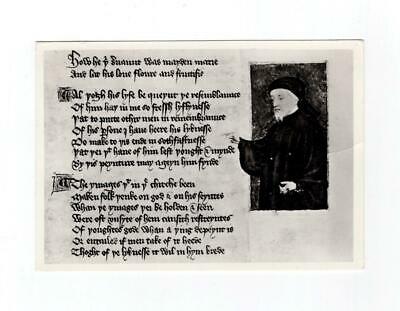 How he þi seruaunt was mayden marie
And lat his loue floure and fructifie
Al þogh his lyfe be queynt þe resemblaunce
Of him haþ in me so fressh lyflynesse
Þat to putte othir men in remembraunce
Of his psone I haue heere his lyknesse
Do make to þis ende in sothfastnesse
Þat þei þt haue of him lest þought & mynde
By þis peynture may ageyn him fynde
The ymages þt in þe chirche been
Maken folk þenke on god & on his seyntes
Whan þe ymages þei beholden & seen
Were oft vnsyte of hem causith restreyntes
Of þoughtes gode whan a þing depeynt is
Or entailed if men take of it heede
Thoght of þe lyknesse it wil in hym brede